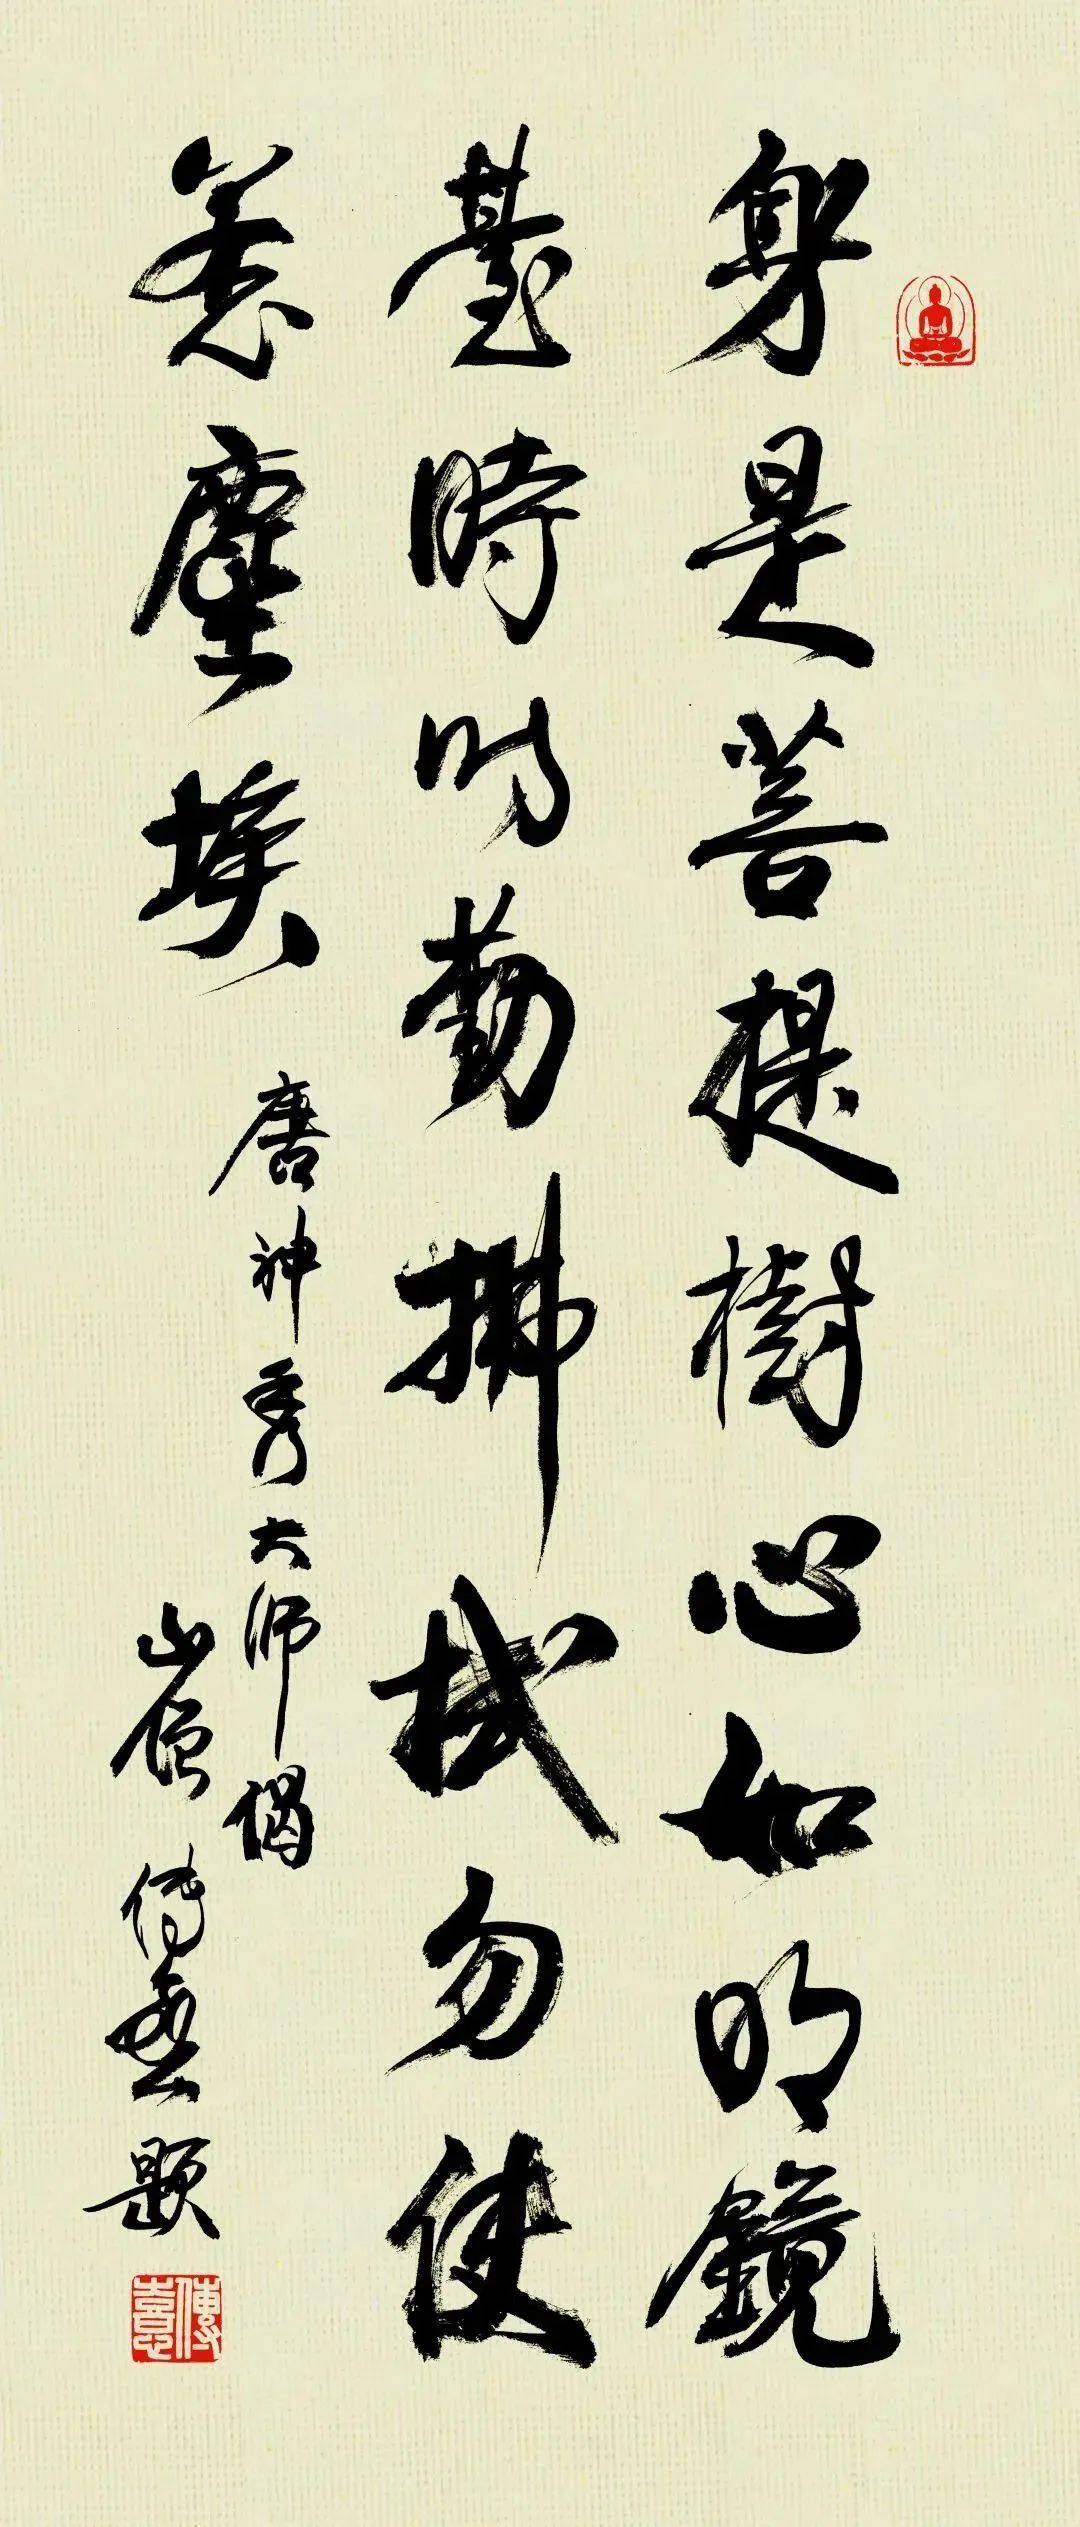 身是菩提樹心如明鏡
臺時時勤拂拭勿使
惹塵埃
唐神秀大師偈
山僧傳喜題
傳喜